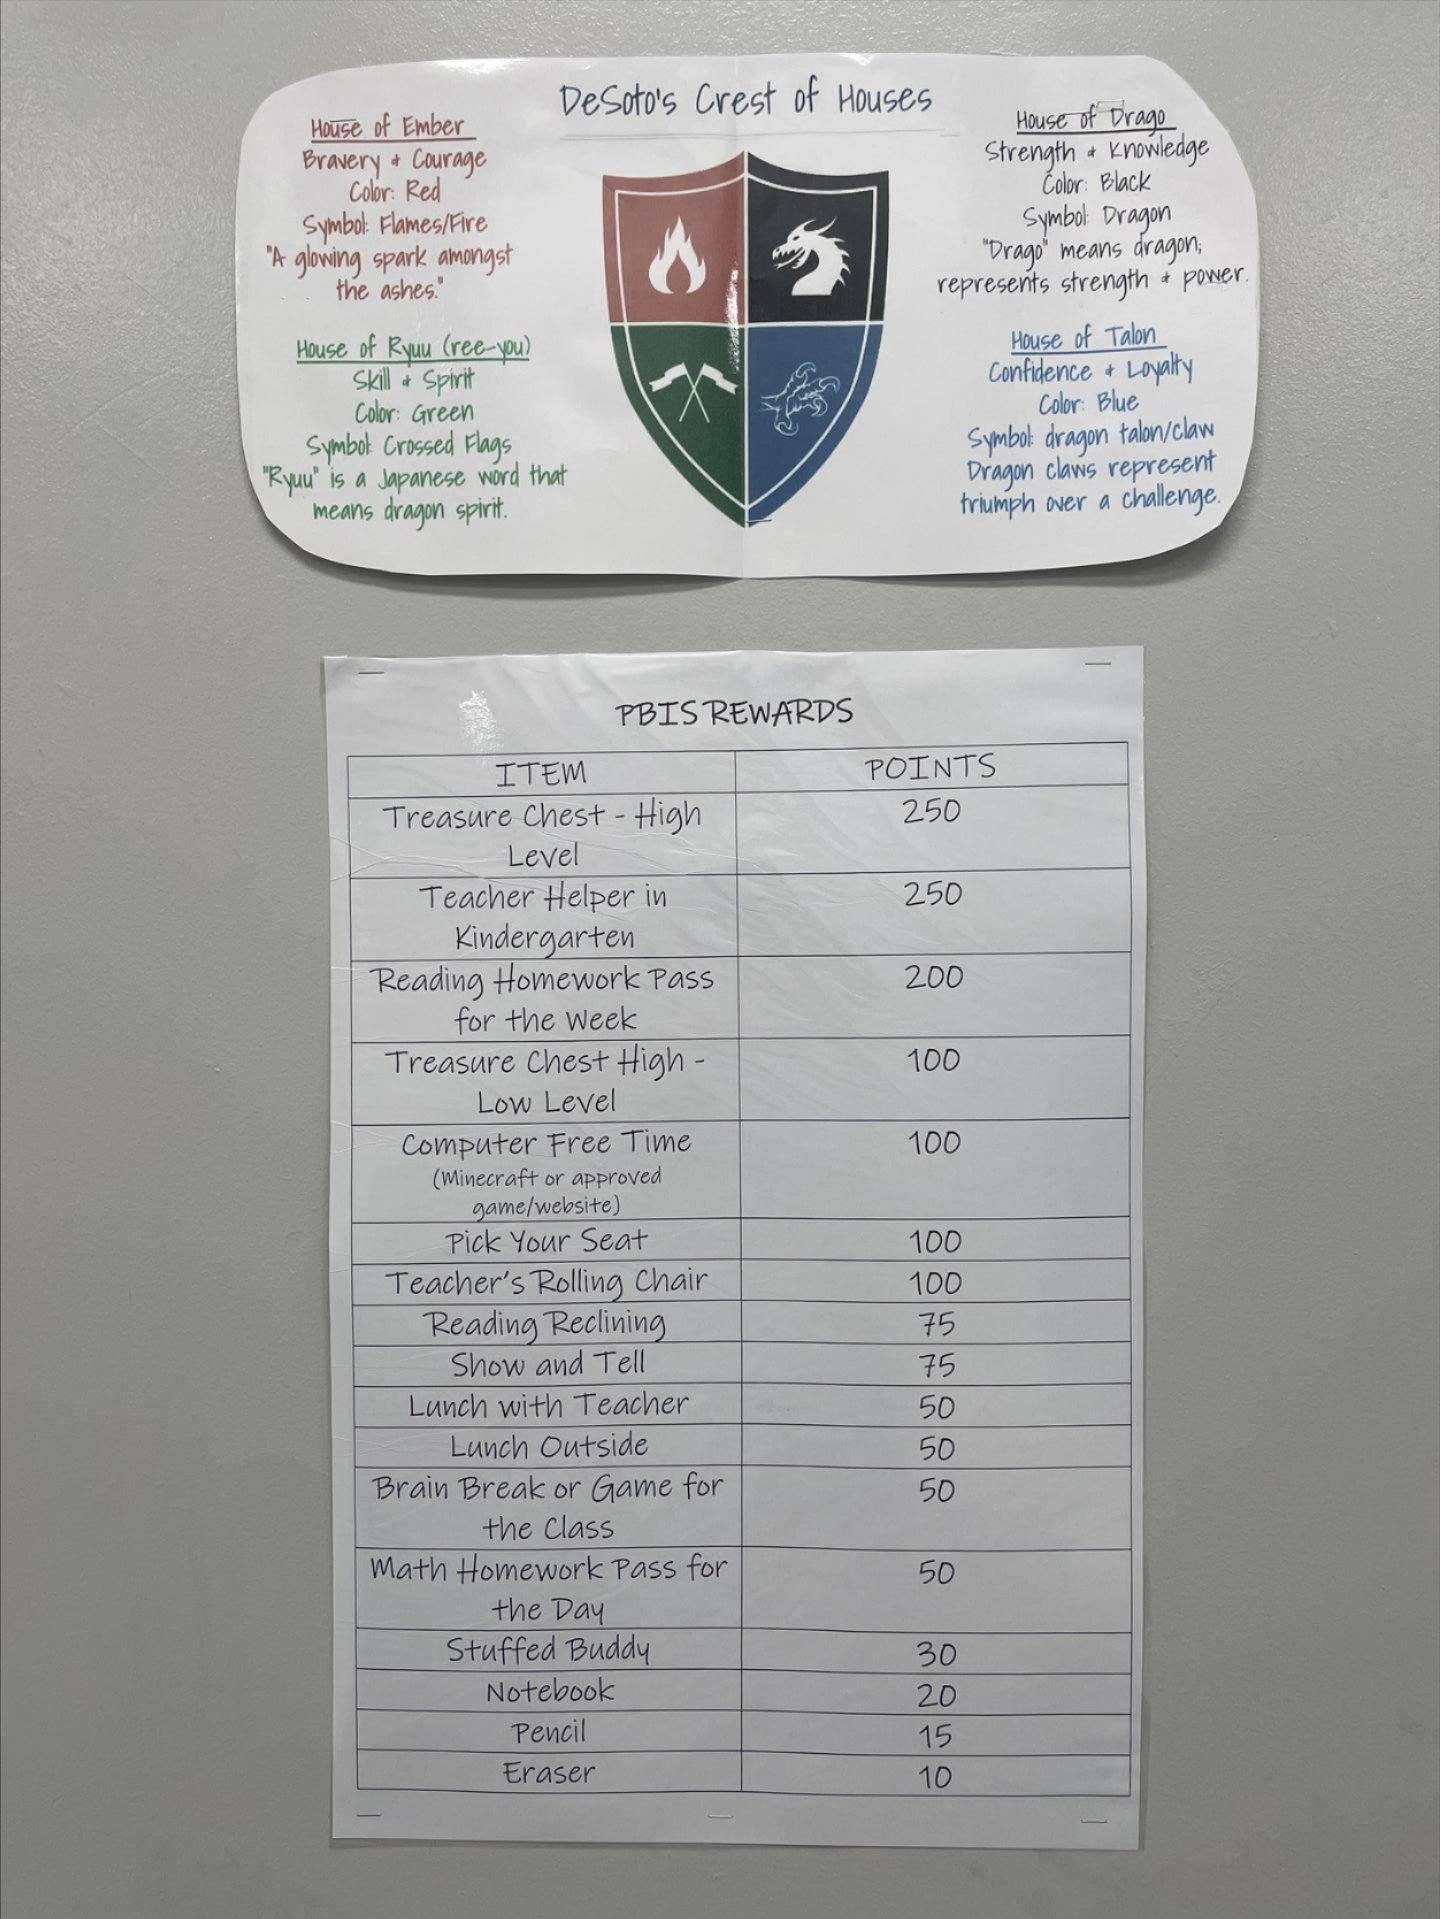 DeSoto's Crest of Houses
House of Ember
Bravery + Courage
Color: Red
Symbol: Flames/Fire
"A glowing spark amongst
the ashes."
House of Drago
Strength + Knowledge
Color: Black
Symbol: Dragon
"Drago" means dragon;
represents strength + power.
House of Ryuu (ree-you)
Skill + Spirit
Color: Green
Symbol: Crossed Flags
"Ryuu" is a Japanese word that
means dragon spirit.
House of Talon
Confidence + Loyalty
Color: Blue
Symbol: dragon talon/claw
Dragon claws represent
triumph over a challenge.
PBIS REWARDS
ITEM POINTS
Treasure Chest - High 250
Level
Teacher Helper in 250
Kindergarten
Reading Homework Pass 200
for the Week
Treasure Chest High - 100
Low Level
Computer Free Time 100
(Minecraft or approved
game/website)
Pick Your Seat 100
Teacher's Rolling Chair 100
Reading Reclining 75
Show and Tell 75
Lunch with Teacher 50
Lunch Outside 50
Brain Break or Game for 50
the Class
Math Homework Pass for 50
the Day
Stuffed Buddy 30
Notebook 20
Pencil 15
Eraser 10